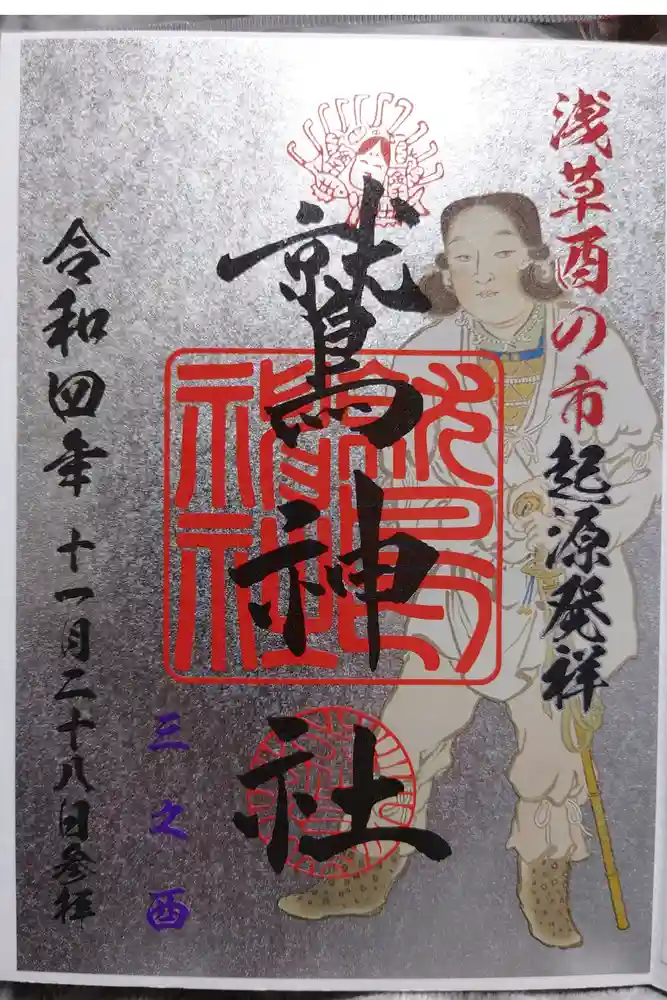 浅草酉の市起源発祥
鷲神社
三之酉
令和四年 十一月二十八日参拝